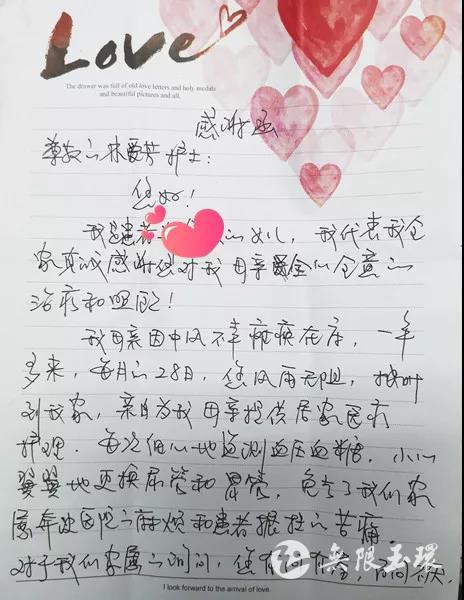 Love
The drawer was full of old love letters and holy medals
and beautiful pictures and all.
感谢函
尊敬的林爱芳护士：
您好！
我是患者的女儿，我代表我全
家真诚感谢您对我母亲全心全意的
治疗和照顾！
我母亲因中风不幸瘫痪在床，一年
多来，每月的28日，您风雨无阻，按时
到我家，亲自为我母亲提供居家医疗
护理。每次细心地监测血压血糖，小心
翼翼地更换尿管和胃管，免去了我们家
属奔波医院的麻烦和患者搬拉的苦痛，
对于我们家属的询问，您有问
無限玉環
I look forward to the arrival of love.